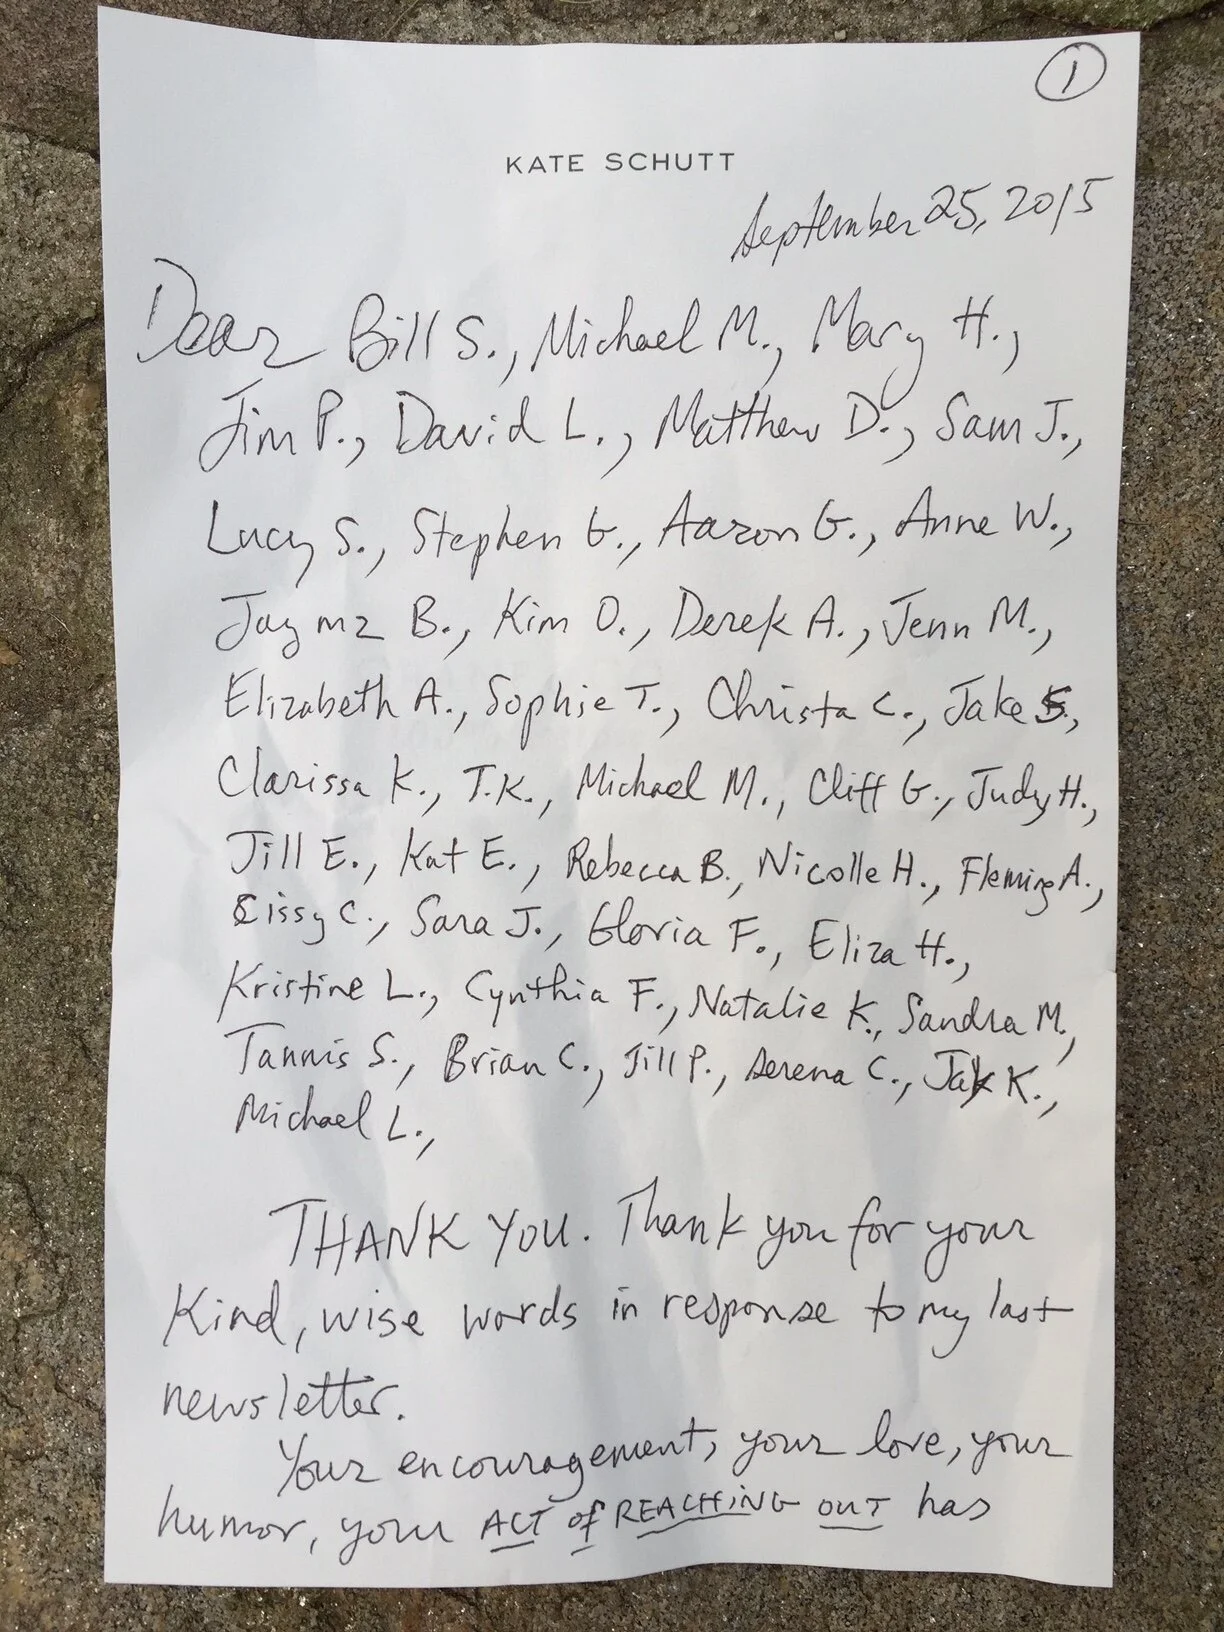 1
KATE SCHUTT
September 25, 2015
Dear Bill S., Michael M., Mary H.,
Jim P., David L., Matthew D., Sam J.,
Lucy S., Stephen G., Aaron G., Anne W.,
Jaymz B., Kim O., Derek A., Jenn M.,
Elizabeth A., Sophie T., Christa C., Jake S.,
Clarissa K., T.K., Michael M., Cliff G., Judy H.,
Jill E., Kat E., Rebecca B., Nicolle H., Fleming A.,
Cissy C., Sara J., Gloria F., Eliza H.,
Kristine L., Cynthia F., Natalie K., Sandra M.,
Tannis S., Brian C., Jill P., Serena C., Jay K.,
Michael L.,
THANK YOU. Thank you for your
kind, wise words in response to my last
newsletter.
Your encouragement, your love, your
humor, your ACT of REACHING OUT has